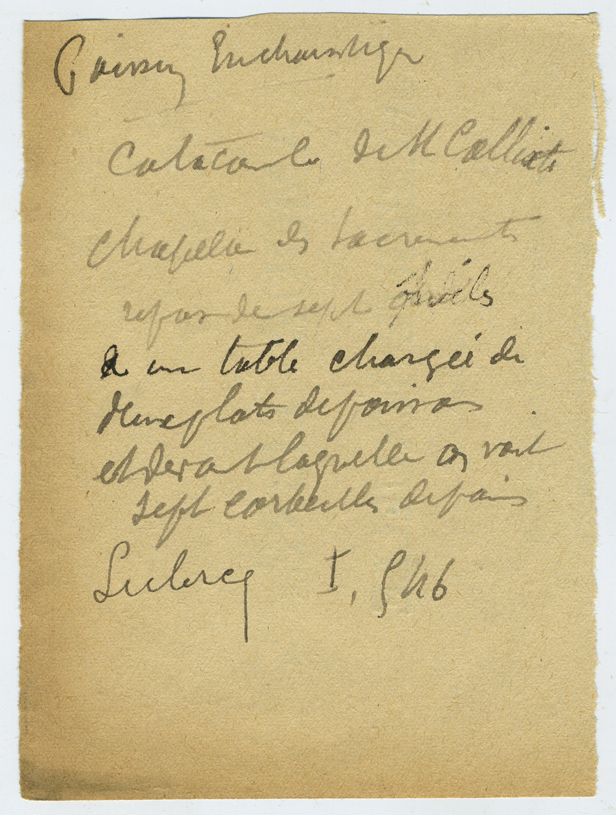 Poisson Eucharistique
Catacombe de M Callixte
Chapelle des sacrements
repas de sept fidèles
à un table chargée de
deux plats de poissons
et devant laquelle on voit
sept corbeilles de pains
Leclercq I, 546